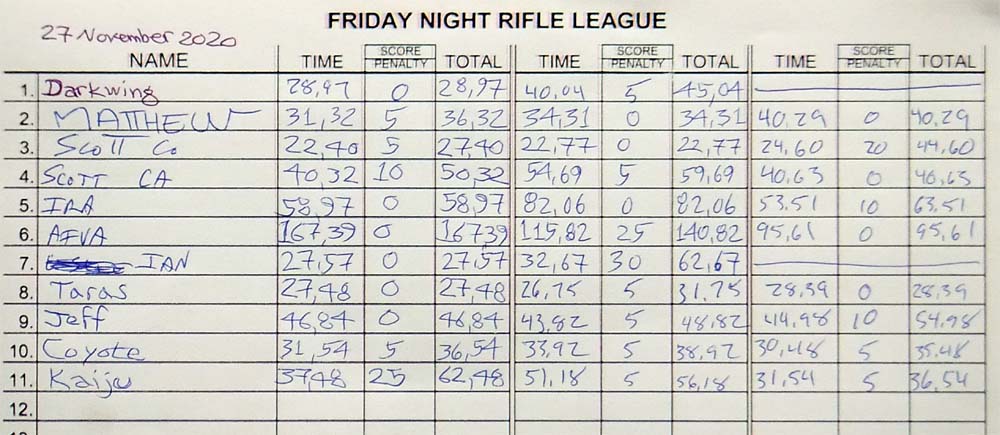 FRIDAY NIGHT RIFLE LEAGUE
27 November 2020
NAME TIME SCORE PENALTY TOTAL TIME SCORE PENALTY TOTAL TIME SCORE PENALTY TOTAL
1. Darkwing 28,97 0 28,97 40,04 5 45,04
2. MATTHEW 31,32 5 36,32 34,31 0 34,31 40,29 0 40,29
3. Scott Co 22,40 5 27,40 22,77 0 22,77 24,60 20 44,60
4. SCOTT CA 40,32 10 50,32 54,69 5 59,69 40,63 0 40,63
5. IRA 58,97 0 58,97 82,06 0 82,06 53.51 10 63.51
6. 167,39 0 167,39 115,82 25 140,82 95,61 0 95,61
7. IAN 27,57 0 27,57 32,67 30 62,67
8. Taras 27,48 0 27,48 26,75 5 31,75 28,39 0 28,39
9. Jeff 46,84 0 46,84 43,82 5 48,82 44,98 10 54,98
10. Coyote 31,54 5 36,54 33,92 5 38,92 30,48 5 35,48
11. Kaiju 37,48 25 62,48 51,18 5 56,18 31,54 5 36,54
12.